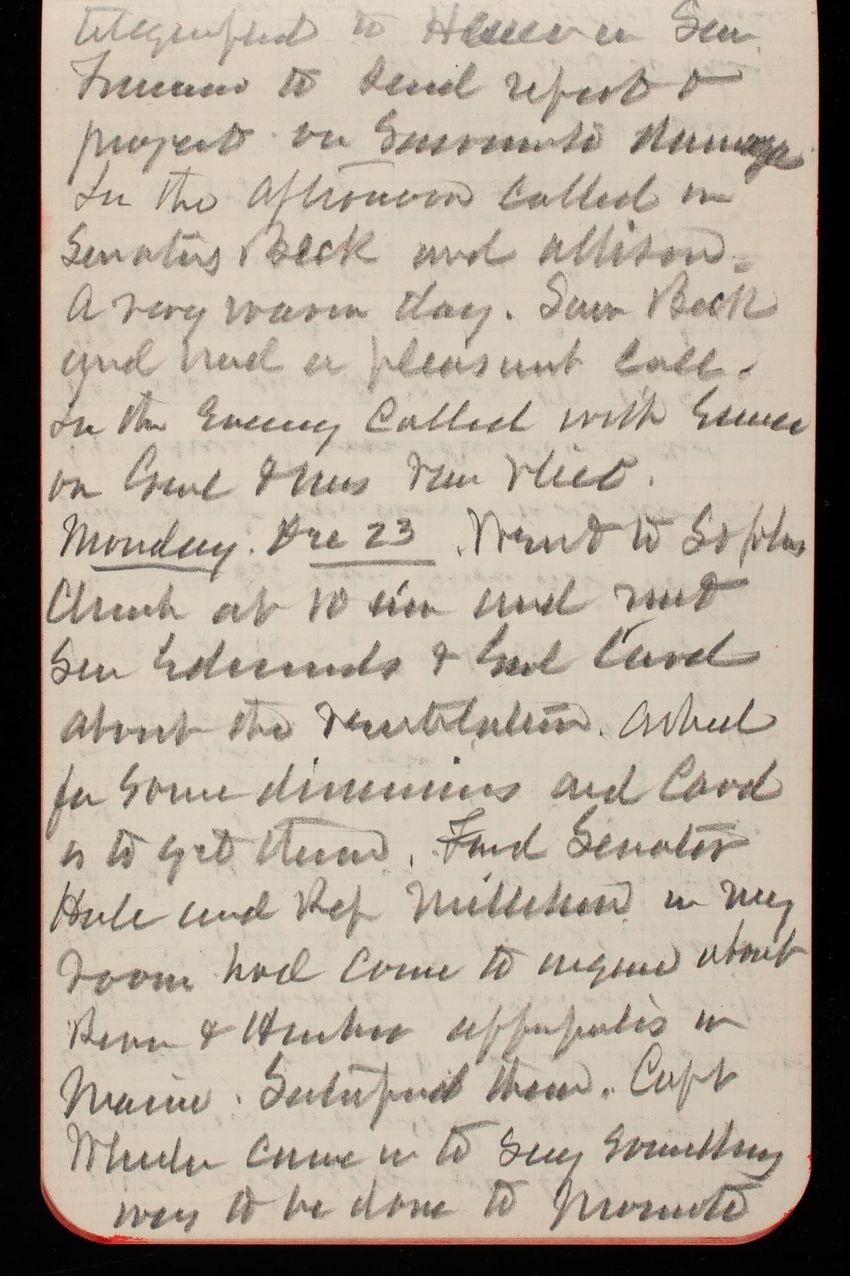 telegraphed to Heuer in San
Francisco to send report &
project on Sacramento damage
In the afternoon called on
Senators Beck and Allison.
A very warm day. Saw Beck
and had a pleasant call.
In the Evening Called with Emma
on Genl & Mrs Van Vliet.
Monday. Dec 23. Went to St Johns
Church at 10 am and met
Sen Edmunds & Genl
about the ventilation. Asked
for some dimensions and
is to get them. Found Senator
Hale and Rep Milliken in my
room had come to argue about
River & Harbor in
Maine. Satisfied them. Capt
Wheeler came in to say something
was to be done to promote